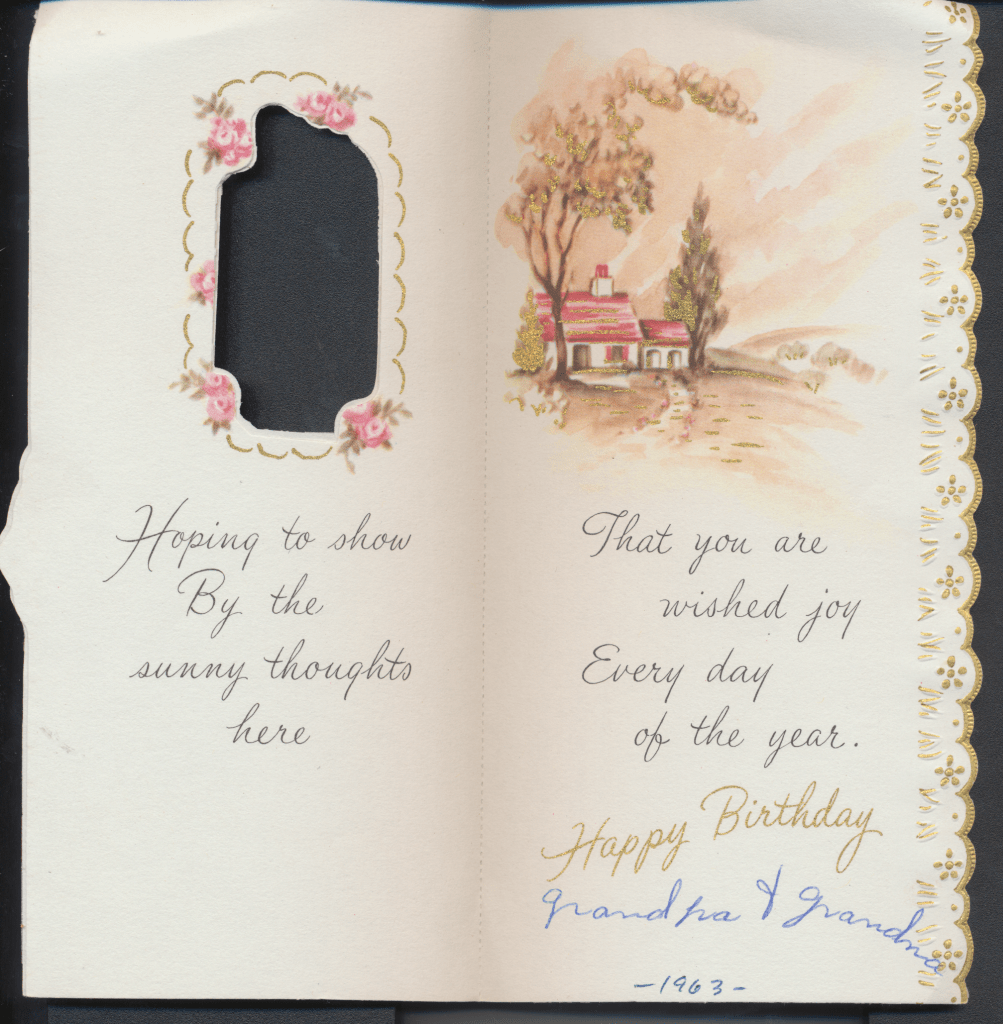 Hoping to show
By the
sunny thoughts
here
That you are
wished joy
Every day
of the year.
Happy Birthday
Grandpa & Grandma
-1963-